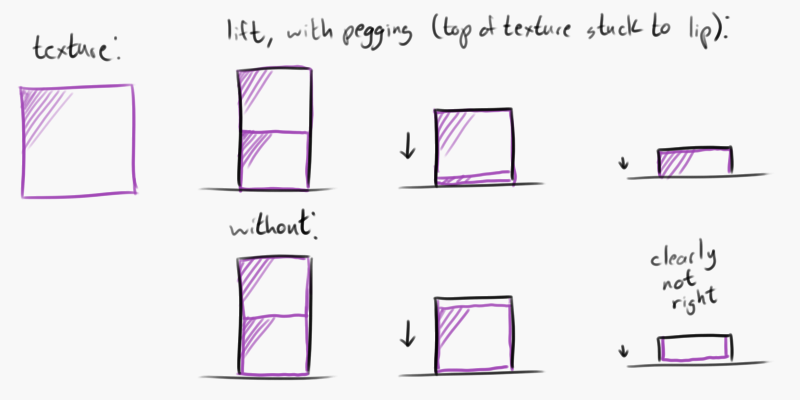 texture:
lift, with pegging (top of texture stuck to lip):
without:
clearly
not
right